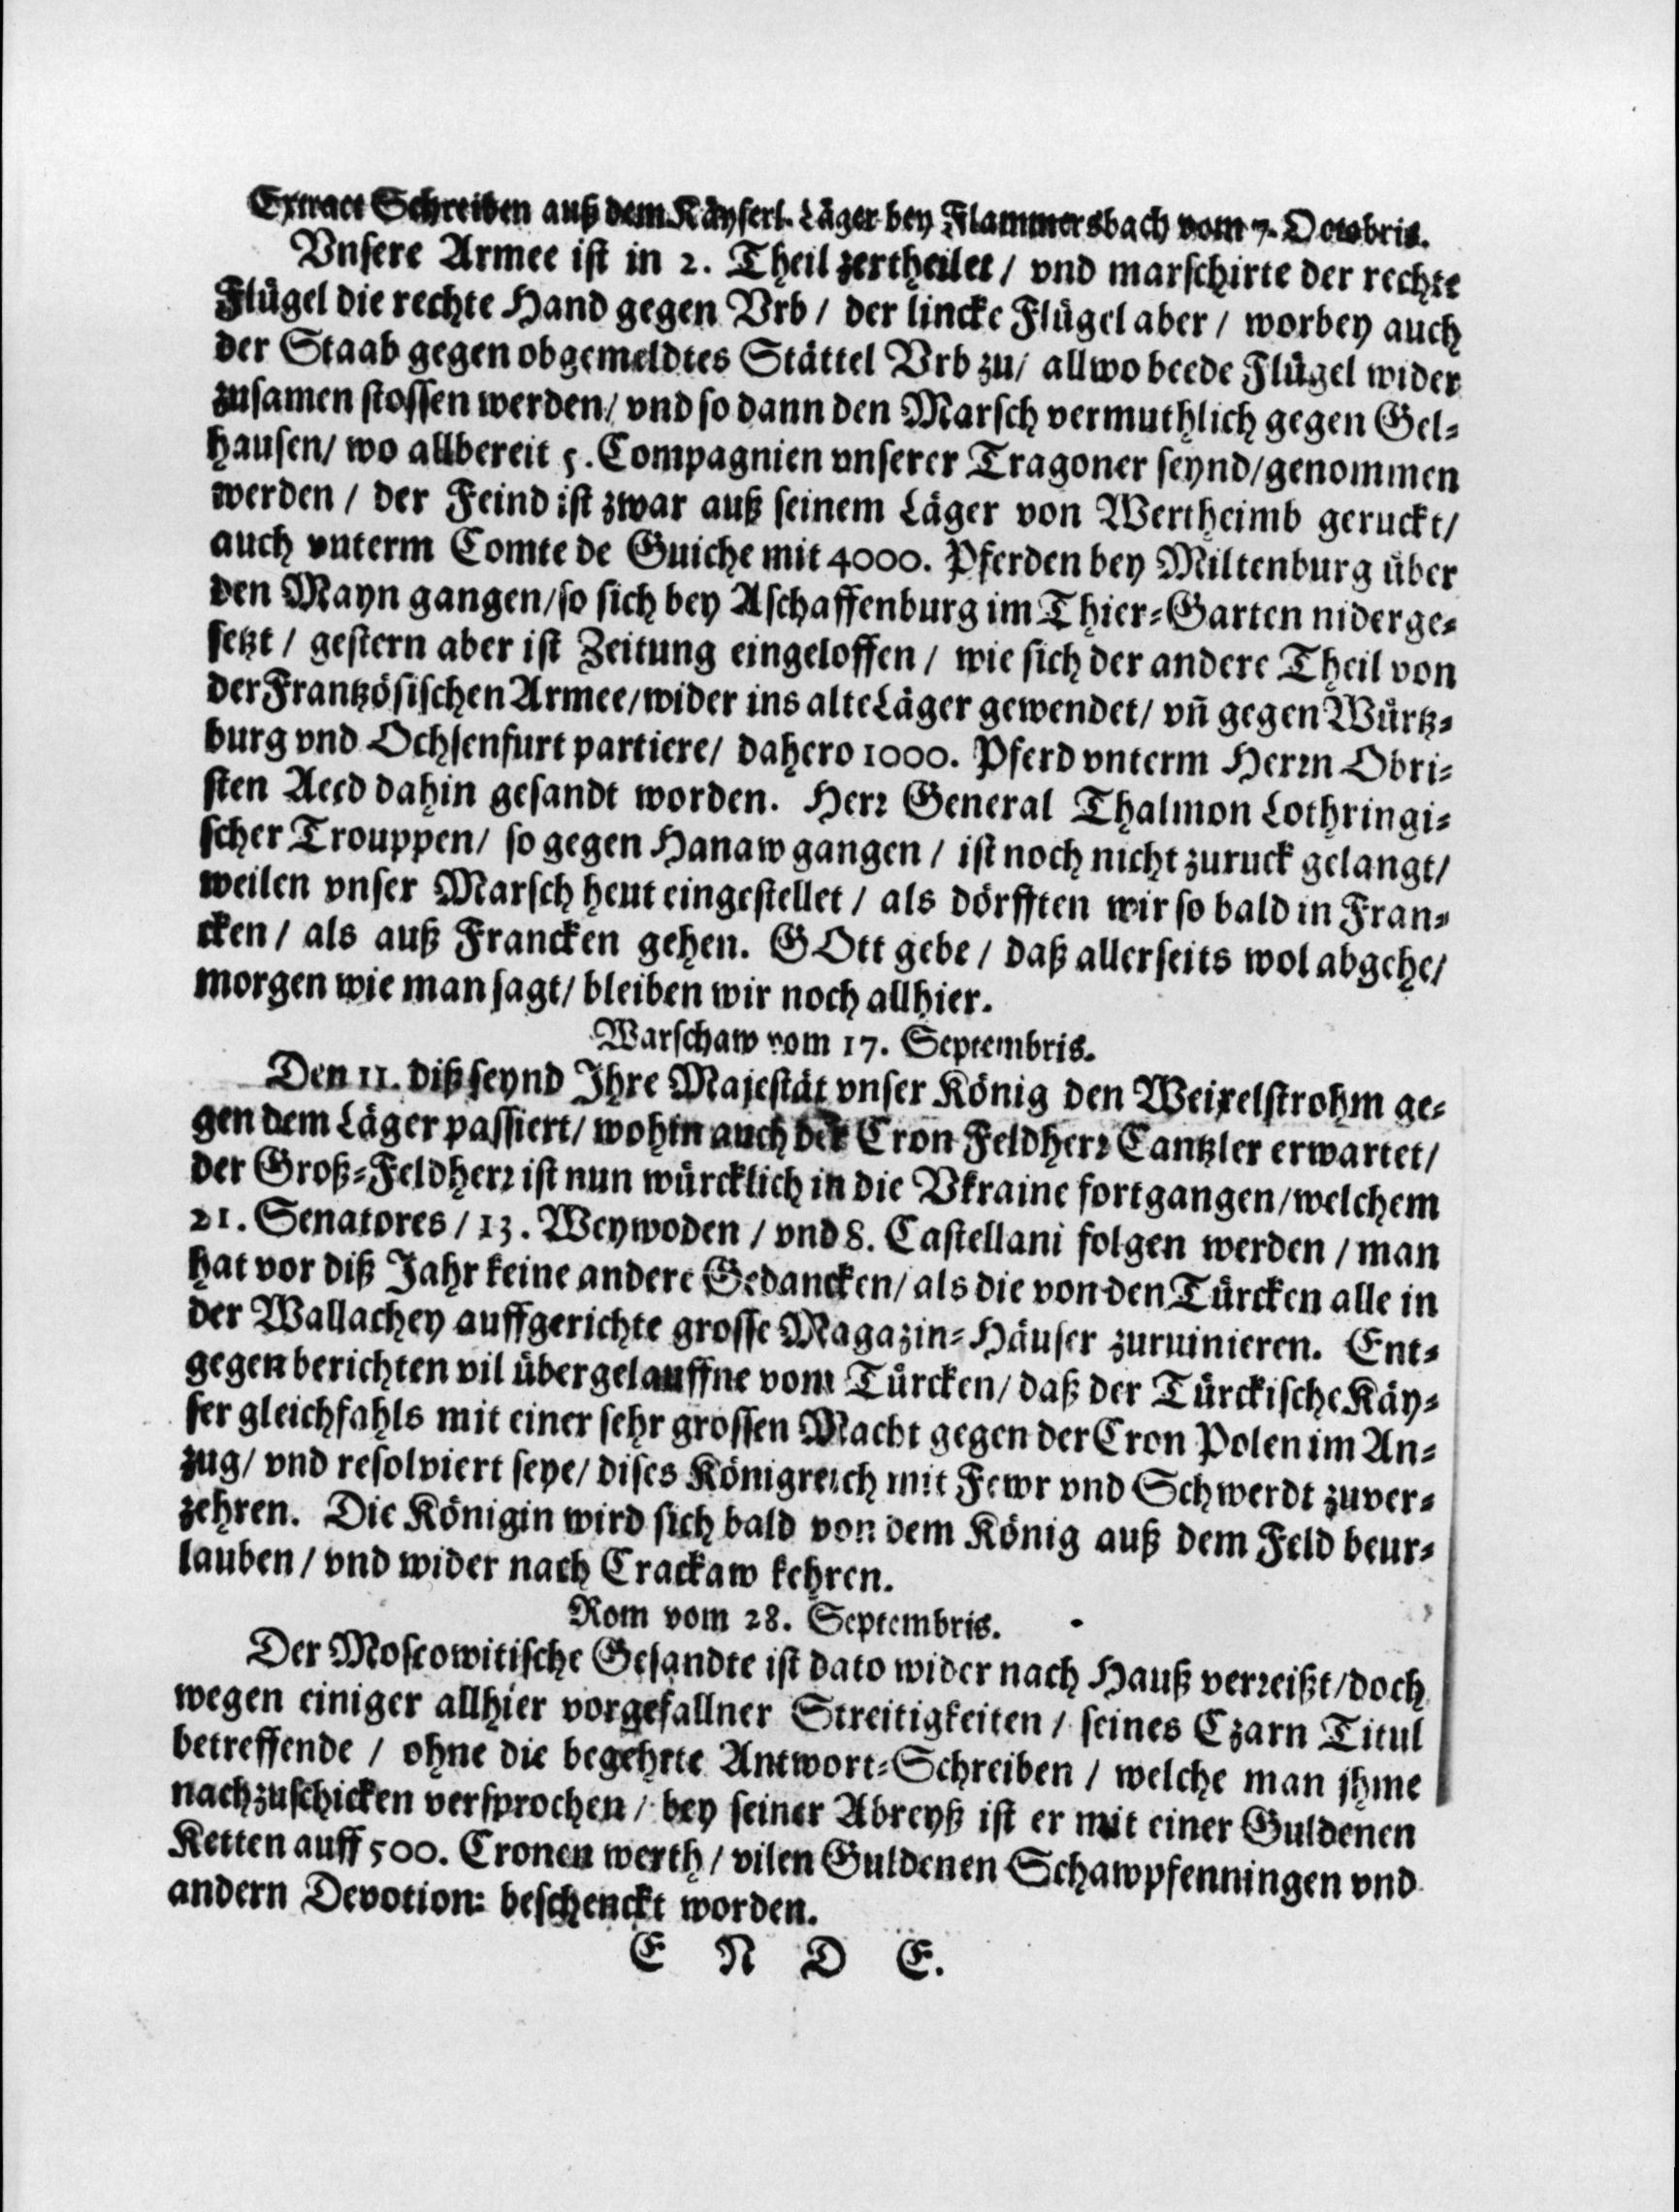 Extract Schreiben auß dem Käyserl. Läger bey Flammersbach vom 7. Octobris.
Vnsere Armee ist in 2. Theil zertheilet / vnd marschirte der rechte
Flügel die rechte Hand gegen Vrb / der lincke Flügel aber / worbey auch
der Staab gegen obgemeldtes Stättel Vrb zu / allwo beede Flügel wider
zusamen stossen werden / vnd so dann den Marsch vermuthlich gegen Gel⸗
hausen / wo allbereit 5. Compagnien vnserer Tragoner seynd / genommen
werden / der Feind ist zwar auß seinem Läger von Wertheimb geruckt /
auch vnterm Comte de Guiche mit 4000. Pferden bey Miltenburg über
den Mayn gangen / so sich bey Aschaffenburg im Thier⸗Garten niderge⸗
setzt / gestern aber ist Zeitung eingeloffen / wie sich der andere Theil von
der Frantzösischen Armee / wider ins alte Läger gewendet / vñ gegen Würtz⸗
burg vnd Ochsenfurt partiere / dahero 1000. Pferd vnterm Herrn Obri⸗
sten Aeed dahin gesandt worden. Herr General Thalmon Lothringi⸗
scher Trouppen / so gegen Hanaw gangen / ist noch nicht zuruck gelangt /
weilen vnser Marsch heut eingestellet / als dörfften wir so bald in Fran⸗
cken / als auß Francken gehen. GOtt gebe / daß allerseits wol abgehe /
morgen wie man sagt / bleiben wir noch allhier.
Warschaw vom 17. Septembris.
Den 11. diß seynd Ihre Majestät vnser König den Weixelstrohm ge⸗
gen dem Läger passiert / wohin auch der Cron Feldherr Cantzler erwartet /
der Groß⸗Feldherr ist nun würcklich in die Vkraine fortgangen / welchem
21. Senatores / 13. Weywoden / vnd 8. Castellani folgen werden / man
hat vor diß Jahr keine andere Gedancken / als die von den Türcken alle in
der Wallachey auffgerichte grosse Magazin⸗Häuser zuruinieren. Ent⸗
gegen berichten vil übergelauffne vom Türcken / daß der Türckische Käy⸗
ser gleichfahls mit einer sehr grossen Macht gegen der Cron Polen im An⸗
zug / vnd resolviert seye / dises Königreich mit Fewr vnd Schwerdt zuver⸗
zehren. Die Königin wird sich bald von dem König auß dem Feld beur⸗
lauben / vnd wider nach Crackaw kehren.
Rom vom 28. Septembris.
Der Moscowitische Gesandte ist dato wider nach Hauß verreißt / doch
wegen einiger allhier vorgefallner Streitigkeiten / seines Czarn Titul
betreffende / ohne die begehrte Antwort⸗Schreiben / welche man jhme
nachzuschicken versprochen / bey seiner Abreyß ist er mit einer Guldenen
Ketten auff 500. Cronen werth / vilen Guldenen Schawpfenningen vnd
andern Devotion: beschenckt worden.
E N D E.